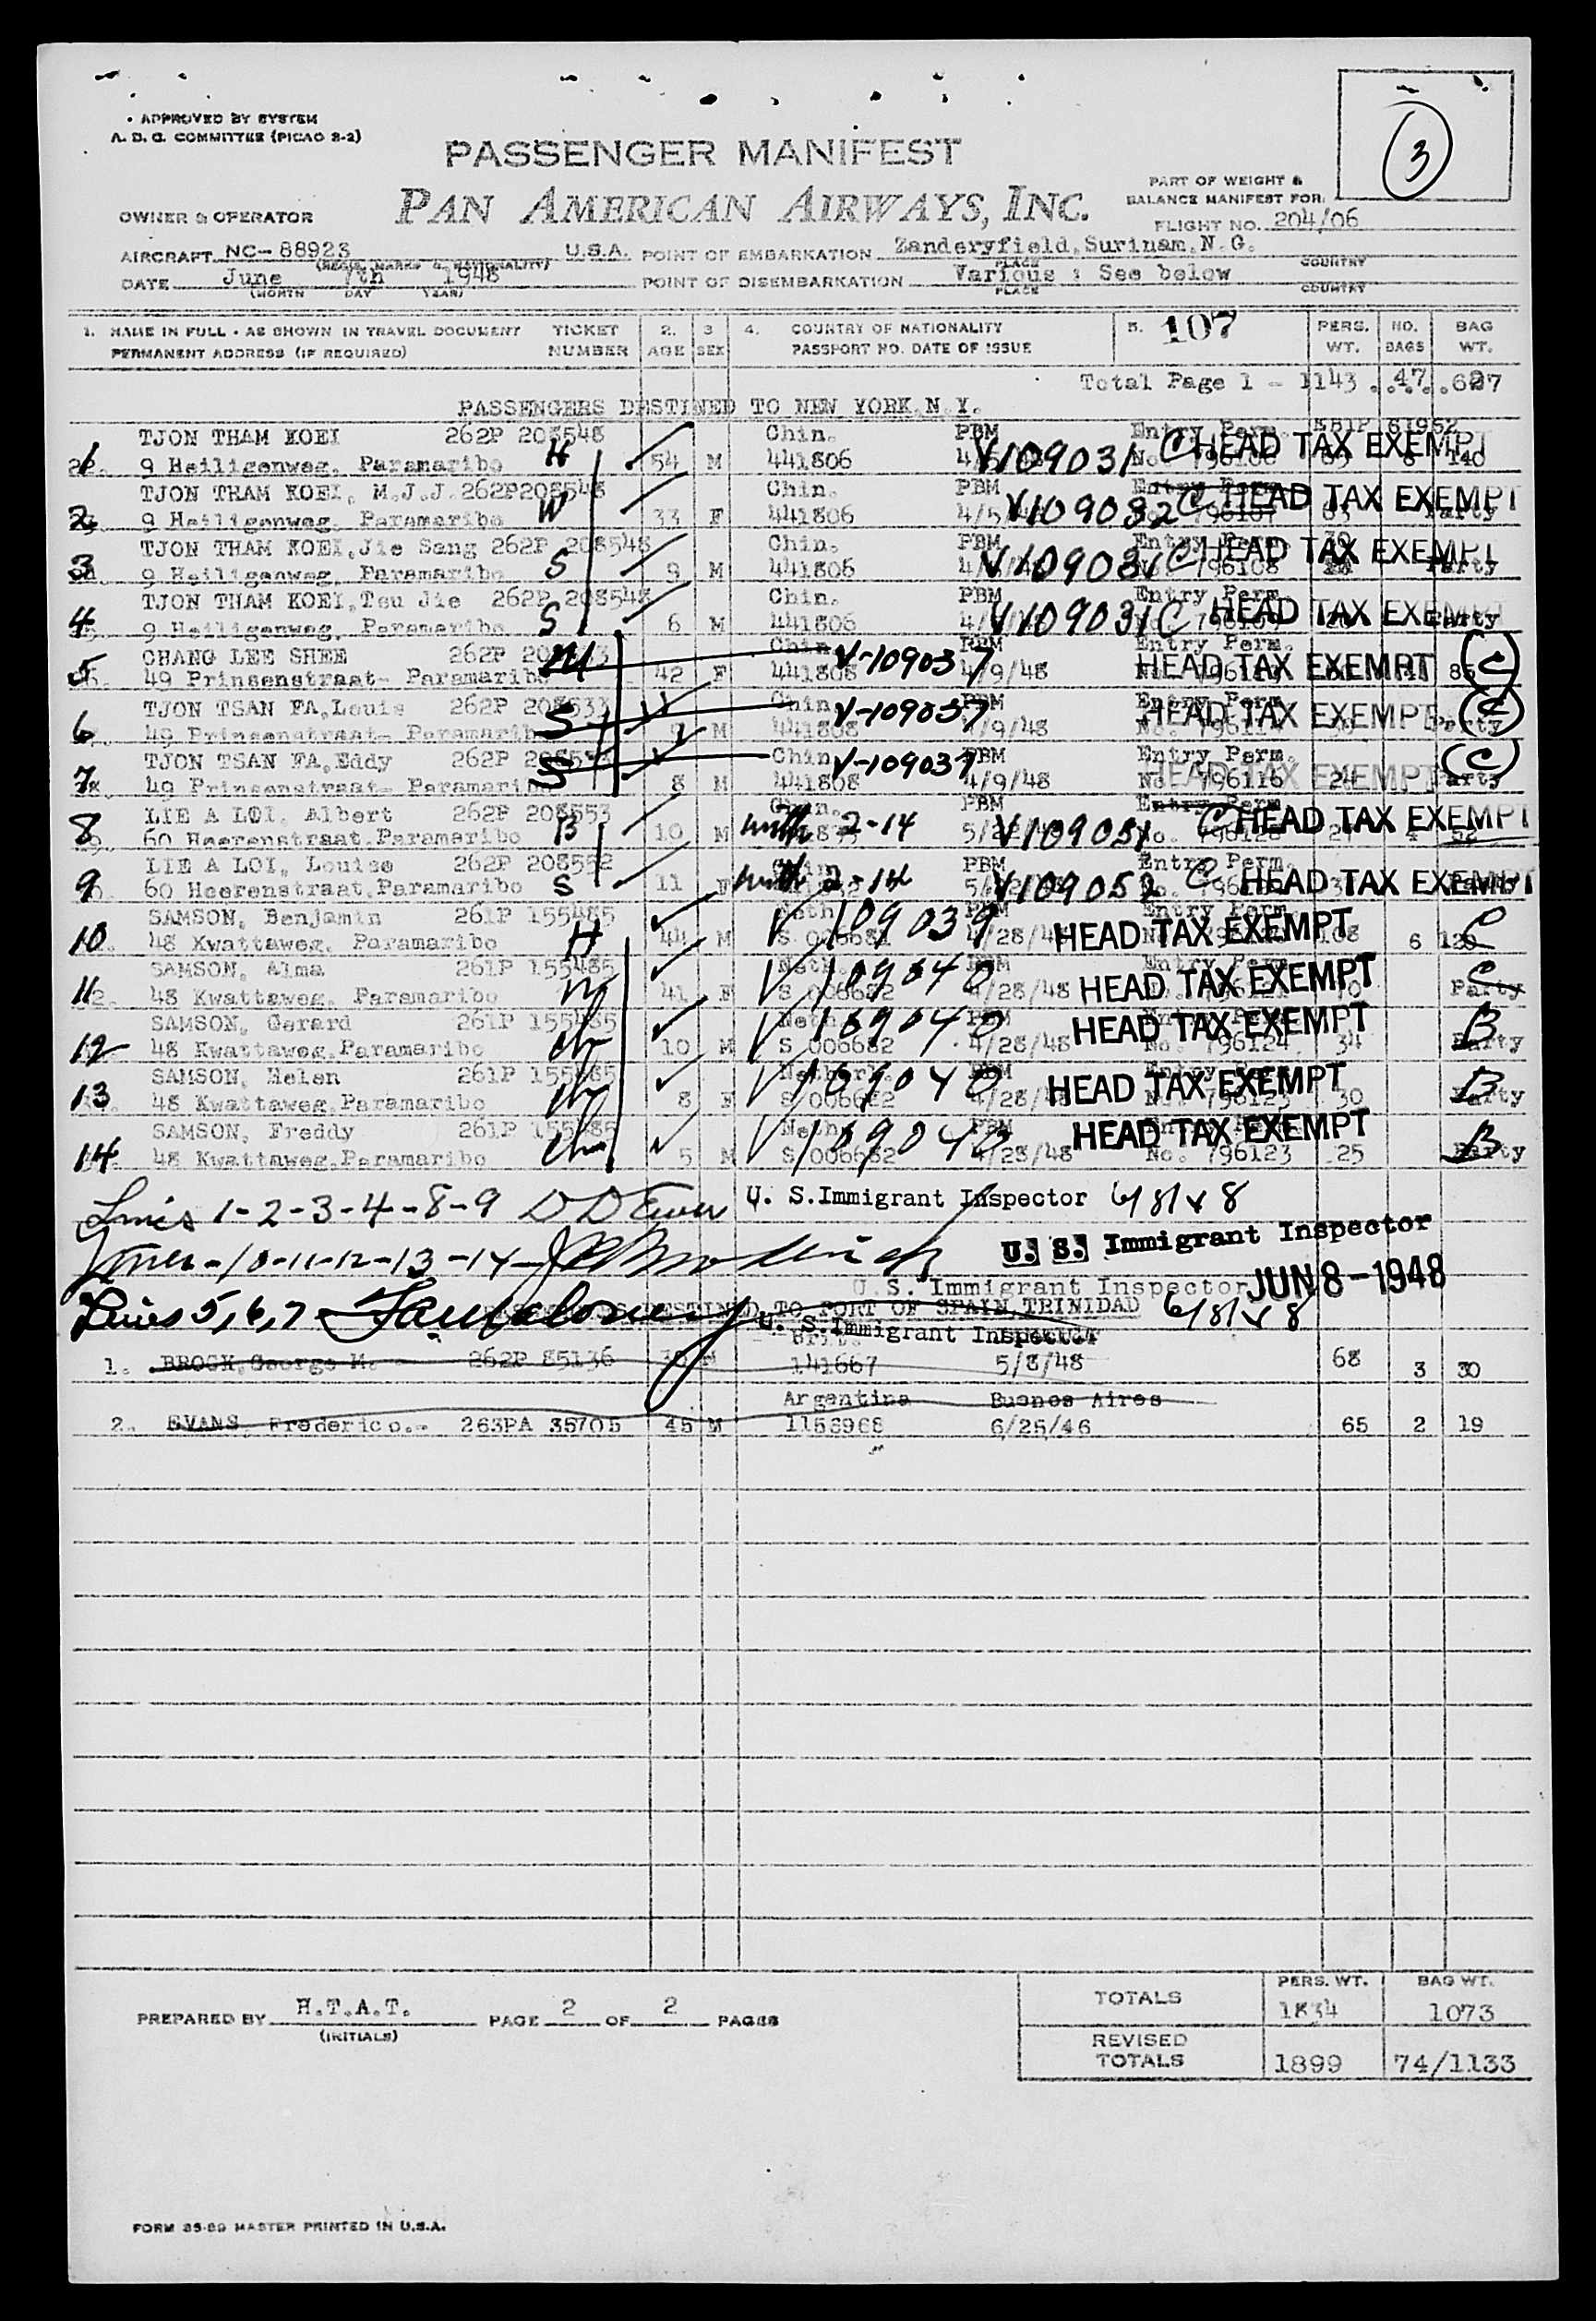 APPROVED BY SYSTEM
A. D. C. COMMITTEE (PICAO 2-2)
3
PASSENGER MANIFEST
PAN AMERICAN AIRWAYS, INC.
PART OF WEIGHT &
BALANCE MANIFEST FOR:
OWNER & OPERATOR
FLIGHT NO. 204/06
AIRCRAFT NC-88923 U.S.A. POINT OF EMBARKATION Zanderyfield, Surinam, N.G.
(REGIS. MARKS & NATIONALITY) PLACE COUNTRY
DATE June 7th 1948 POINT OF DISEMBARKATION Various : See below
(MONTH DAY YEAR) PLACE COUNTRY
1. NAME IN FULL - AS SHOWN IN TRAVEL DOCUMENT TICKET 2. 3 4. COUNTRY OF NATIONALITY 5. 107 PERS. NO. BAG
PERMANENT ADDRESS (IF REQUIRED) NUMBER AGE SEX PASSPORT NO. DATE OF ISSUE WT. BAGS WT.
Total Page 1 - 1143 47
PASSENGERS DESTINED TO NEW YORK, N.Y.
TJON THAM KOEI 262P 208548 Chin. PBM Entry Perm.
1 9 Heiligenweg, Paramaribo H 54 M 441806 V109031 C HEAD TAX EXEMPT 140
TJON THAM KOEI, M.J.J. 262P208548 Chin. PBM
2 9 Heiligenweg, Paramaribo W 33 F 441806 V109032 C HEAD TAX EXEMPT Party
TJON THAM KOEI, Jie Sang 262P 208548 Chin. PBM Entry Perm.
3 9 Heiligenweg, Paramaribo S 9 M 441806 V109031 C HEAD TAX EXEMPT Party
TJON THAM KOEI, Tsu Jie 262P 208548 Chin. PBM Entry Perm.
4 9 Heiligenweg, Paramaribo S 6 M 441806 V109031 C HEAD TAX EXEMPT Party
CHANG LEE SHEE 262P Chin. PBM Entry Perm.
5 49 Prinsenstraat- Paramaribo M 42 F 441808 V-109037 4/9/48 HEAD TAX EXEMPT C
TJON TSAN FA, Louis 262P 208533 Chin. PBM Entry Perm.
6 49 Prinsenstraat- Paramaribo S M 441808 V-109037 4/9/48 HEAD TAX EXEMPT C Party
TJON TSAN FA, Eddy 262P Chin. PBM Entry Perm.
7 49 Prinsenstraat- Paramaribo S 8 M 441808 V-109037 4/9/48 No. 796116 HEAD TAX EXEMPT 24 C Party
LIE A LOI, Albert 262P 208553 Chin. PBM Entry Perm.
8 60 Heerenstraat, Paramaribo B 10 M with 2-14 V109051 C HEAD TAX EXEMPT
LIE A LOI, Louise 262P 208552 Chin. PBM Entry Perm.
9 60 Heerenstraat, Paramaribo S 11 F with 2-14 V109052 C HEAD TAX EXEMPT
SAMSON, Benjamin 261P 155485 Neth. PBM Entry Perm.
10 48 Kwattaweg, Paramaribo H 44 M V109039 4/28/48 HEAD TAX EXEMPT 108 6 120 C
SAMSON, Alma 261P 155485 Neth. PBM Entry Perm.
11 48 Kwattaweg, Paramaribo W 41 F S 006682 V109040 4/28/48 HEAD TAX EXEMPT C Party
SAMSON, Gerard 261P 155485 Neth. PBM
12 48 Kwattaweg, Paramaribo ch 10 M S 006682 V109040 4/28/48 HEAD TAX EXEMPT No. 796124 34 B Party
SAMSON, Helen 261P 155485 PBM
13 48 Kwattaweg, Paramaribo ch 8 F S 006682 V109040 4/28/48 HEAD TAX EXEMPT 30 B Party
SAMSON, Freddy 261P 155485 Neth. PBM
14 48 Kwattaweg, Paramaribo ch 5 M S 006682 V109040 4/28/48 HEAD TAX EXEMPT No. 796123 25 B Party
Lines 1-2-3-4-8-9 U. S. Immigrant Inspector 6/8/48
Lines-10-11-12-13-14- U. S. Immigrant Inspector
U. S. Immigrant Inspector JUN 8-1948
Lines 5,6,7 DESTINED TO PORT OF SPAIN, TRINIDAD 6/8/48
U. S. Immigrant Inspector
1. BROCK, George M. 262P 85136 M 141667 5/8/48 68 3 30
Argentina Buenos Aires
2. EVANS, Frederico.- 263PA 35705 45 M 1158968 6/25/46 65 2 19
TOTALS PERS. WT. BAG WT.
1834 1073
PREPARED BY H.T.A.T. PAGE 2 OF 2 PAGES
(INITIALS)
REVISED
TOTALS 1899 74/1133
FORM 35-89 MASTER PRINTED IN U.S.A.